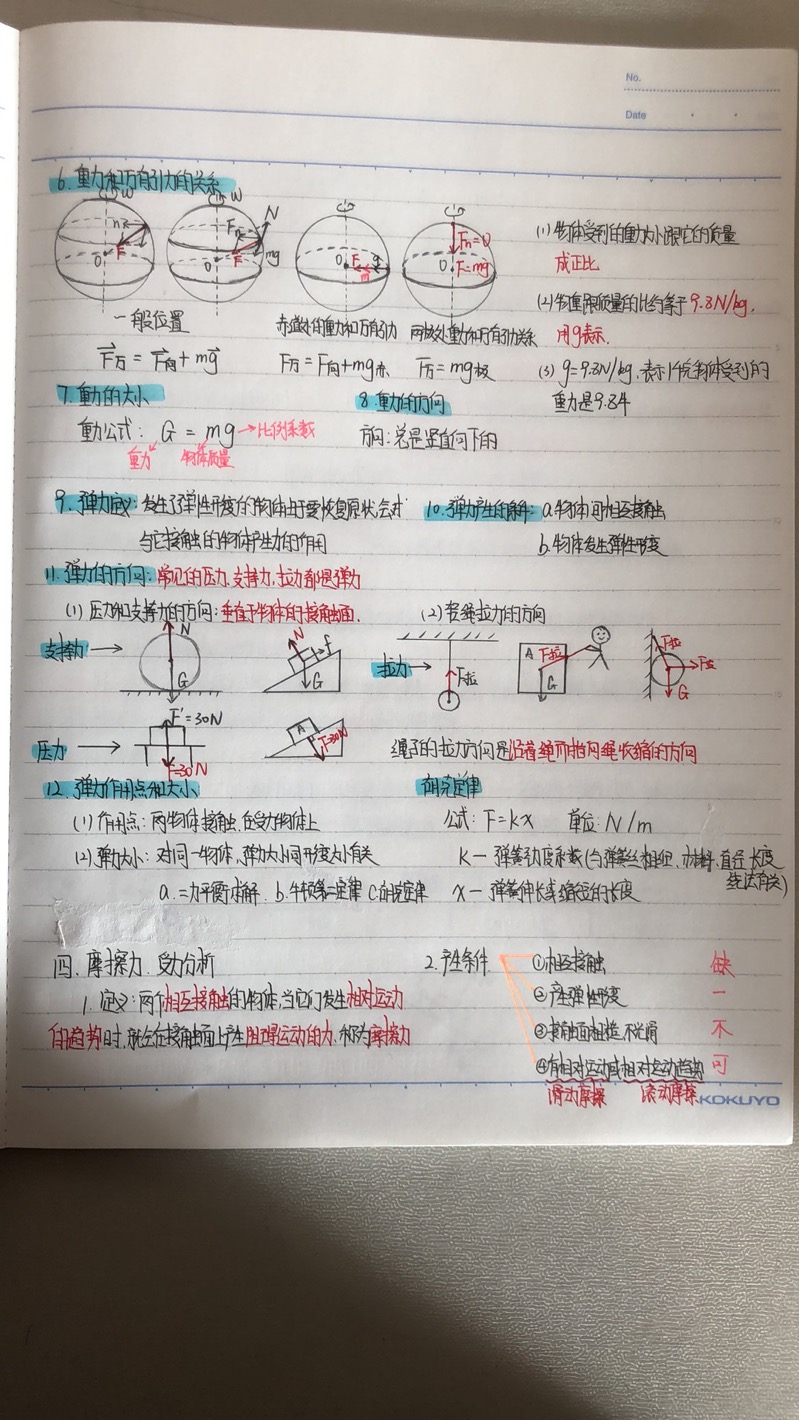 No.
Date
6. 重力和万有引力的关系
W W N
Fn mg
O F O F O F O
Fn=0
F=mg
一般位置
赤道处的重力和万有引力 两极处重力和万有引力关系
F万 = F向 + mg
F万 = F向 + mg赤 F万 = mg极
(1) 物体受到的重力大小跟它的质量
成正比
(2) 物重跟质量的比约等于9.8N/kg,
用g表示.
(3) g=9.8N/kg,表示1千克物体受到的
重力是9.8牛
7. 重力的大小
重力公式: G = mg → 比例系数
重力 物体质量
8. 重力的方向
方向: 总是竖直向下的
9. 弹力定义: 发生了弹性形变的物体由于要恢复原状,会对
与它接触的物体产生力的作用
10. 弹力产生的条件: a.物体间相互接触
b.物体发生弹性形变
11. 弹力的方向: 常见的压力,支持力,拉力都是弹力
(1) 压力和支持力的方向: 垂直于物体的接触面.
(2) 轻绳拉力的方向
支持力 → N G N f G
拉力 → F拉 A F拉 G F拉 G
压力 → F'=30N F=30N A F=30N
绳子的拉力方向是沿着绳而指向绳收缩的方向
12. 弹力作用点和大小
(1) 作用点: 两物体接触,在受力物体上
(2) 弹力大小: 对同一物体,弹力大小同形变大小有关
a. 二力平衡求解. b. 牛顿第二定律 c.胡克定律
胡克定律
公式: F=kx 单位: N/m
k — 弹簧劲度系数(与弹簧丝粗细、材料、直径、长度
绕法有关)
x — 弹簧伸长或缩短的长度
四、摩擦力、受力分析
1. 定义: 两个相互接触的物体,当它们发生相对运动
的趋势时,就会在接触面上产生阻碍运动的力,称为摩擦力
2. 产生条件
①相互接触 缺
②产生弹性形变 一
③接触面粗糙不光滑 不
④有相对运动或相对运动趋势 可
滑动摩擦 滚动摩擦
KOKUYO